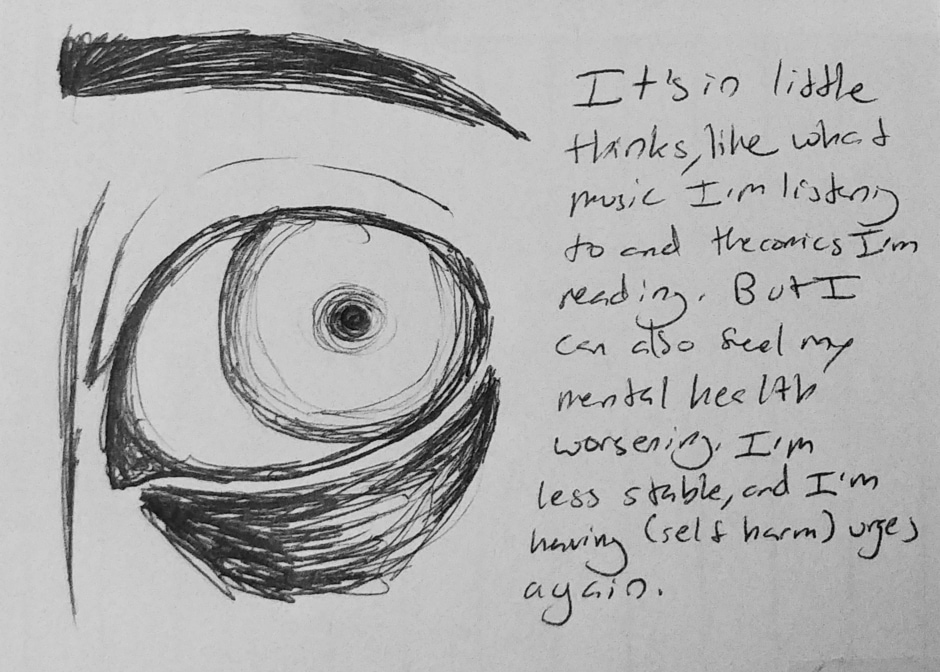 It's in little
thinks, like what
music I'm listening
to and the comics I'm
reading. But I
can also feel my
mental health
worsening. I'm
less stable, and I'm
having (self harm) urges
again.